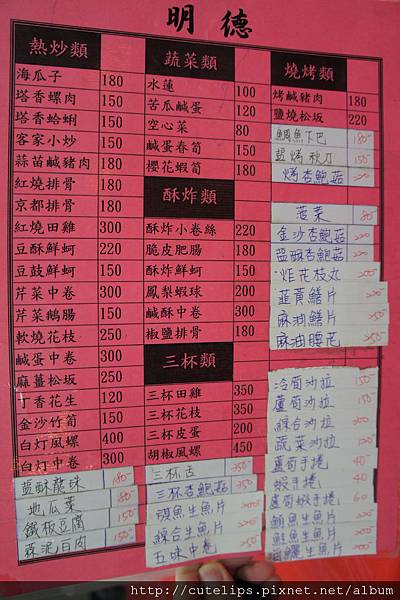 明德
熱炒類
海瓜子 180
塔香螺肉 150
塔香蛤蜊 150
客家小炒 150
蒜苗鹹豬肉 180
紅燒排骨 180
京都排骨 180
紅燒田雞 300
豆酥鮮蚵 220
豆鼓鮮蚵 150
芹菜中卷 300
芹菜鵝腸 150
軟燒花枝 250
鹹蛋中卷 300
麻薑松坂 250
丁香花生 120
金沙竹筍 150
白灯風螺 400
白灯中卷 300
鹽酥龍珠 180
地瓜葉 150
鐵板豆腐 150
蒜泥白肉 150
蔬菜類
水蓮 100
苦瓜鹹蛋 120
空心菜 80
鹹蛋春筍 150
櫻花蝦筍 180
酥炸類
酥炸小卷絲 220
脆皮肥腸 180
酥炸鮮蚵 150
鳳梨蝦球 200
鹹酥中卷 300
椒鹽排骨 180
三杯類
三杯田雞 350
三杯花枝 350
三杯皮蛋 200
胡椒風螺 450
三杯舌 350
三杯杏鮑菇
生魚片
綜合生魚片
五味中卷
燒烤類
烤鹹豬肉 180
鹽燒松坂 220
鯛魚下巴 180
鹽烤秋刀 150
烤杏鮑菇
菠菜 80
金沙杏鮑菇
鹽酥杏鮑菇
炸花枝丸
韮黃鱔片
麻油鱔片
麻油腰花
冷筍沙拉 150
蘆筍沙拉 150
綜合沙拉 200
蔬菜沙拉 120
蘆筍手捲
蝦手捲
蘆筍蝦手捲 60
鮪魚生魚片
鮭魚生魚片
旗魚生魚片
http://cutelips.pixnet.net/album